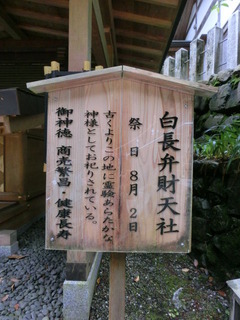 白長弁財天社
祭日8月2日
古くよりこの地に霊験あらたかな
神様としてお祀りされている。
御神徳 商売繁昌・健康長寿